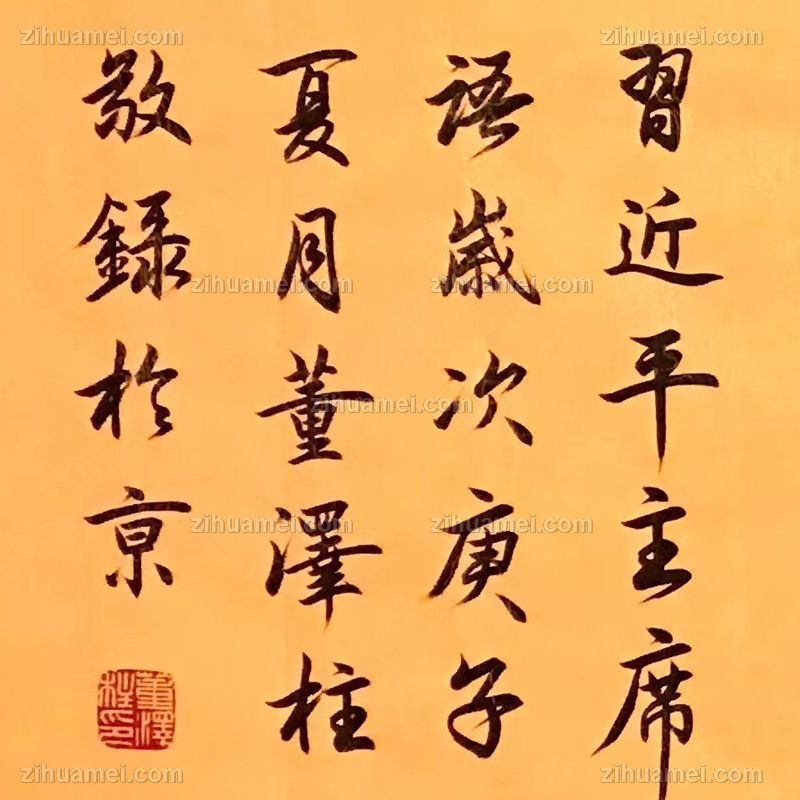 習近平主席
語歲次庚子
夏月董澤柱
敬錄於京
董澤柱印
zihuamei.com
zihuamei.com
zihuamei.com
zihuamei.com
zihuamei.com
zihuamei.com
zihuamei.com
zihuamei.com
zihuamei.com
zihuamei.com